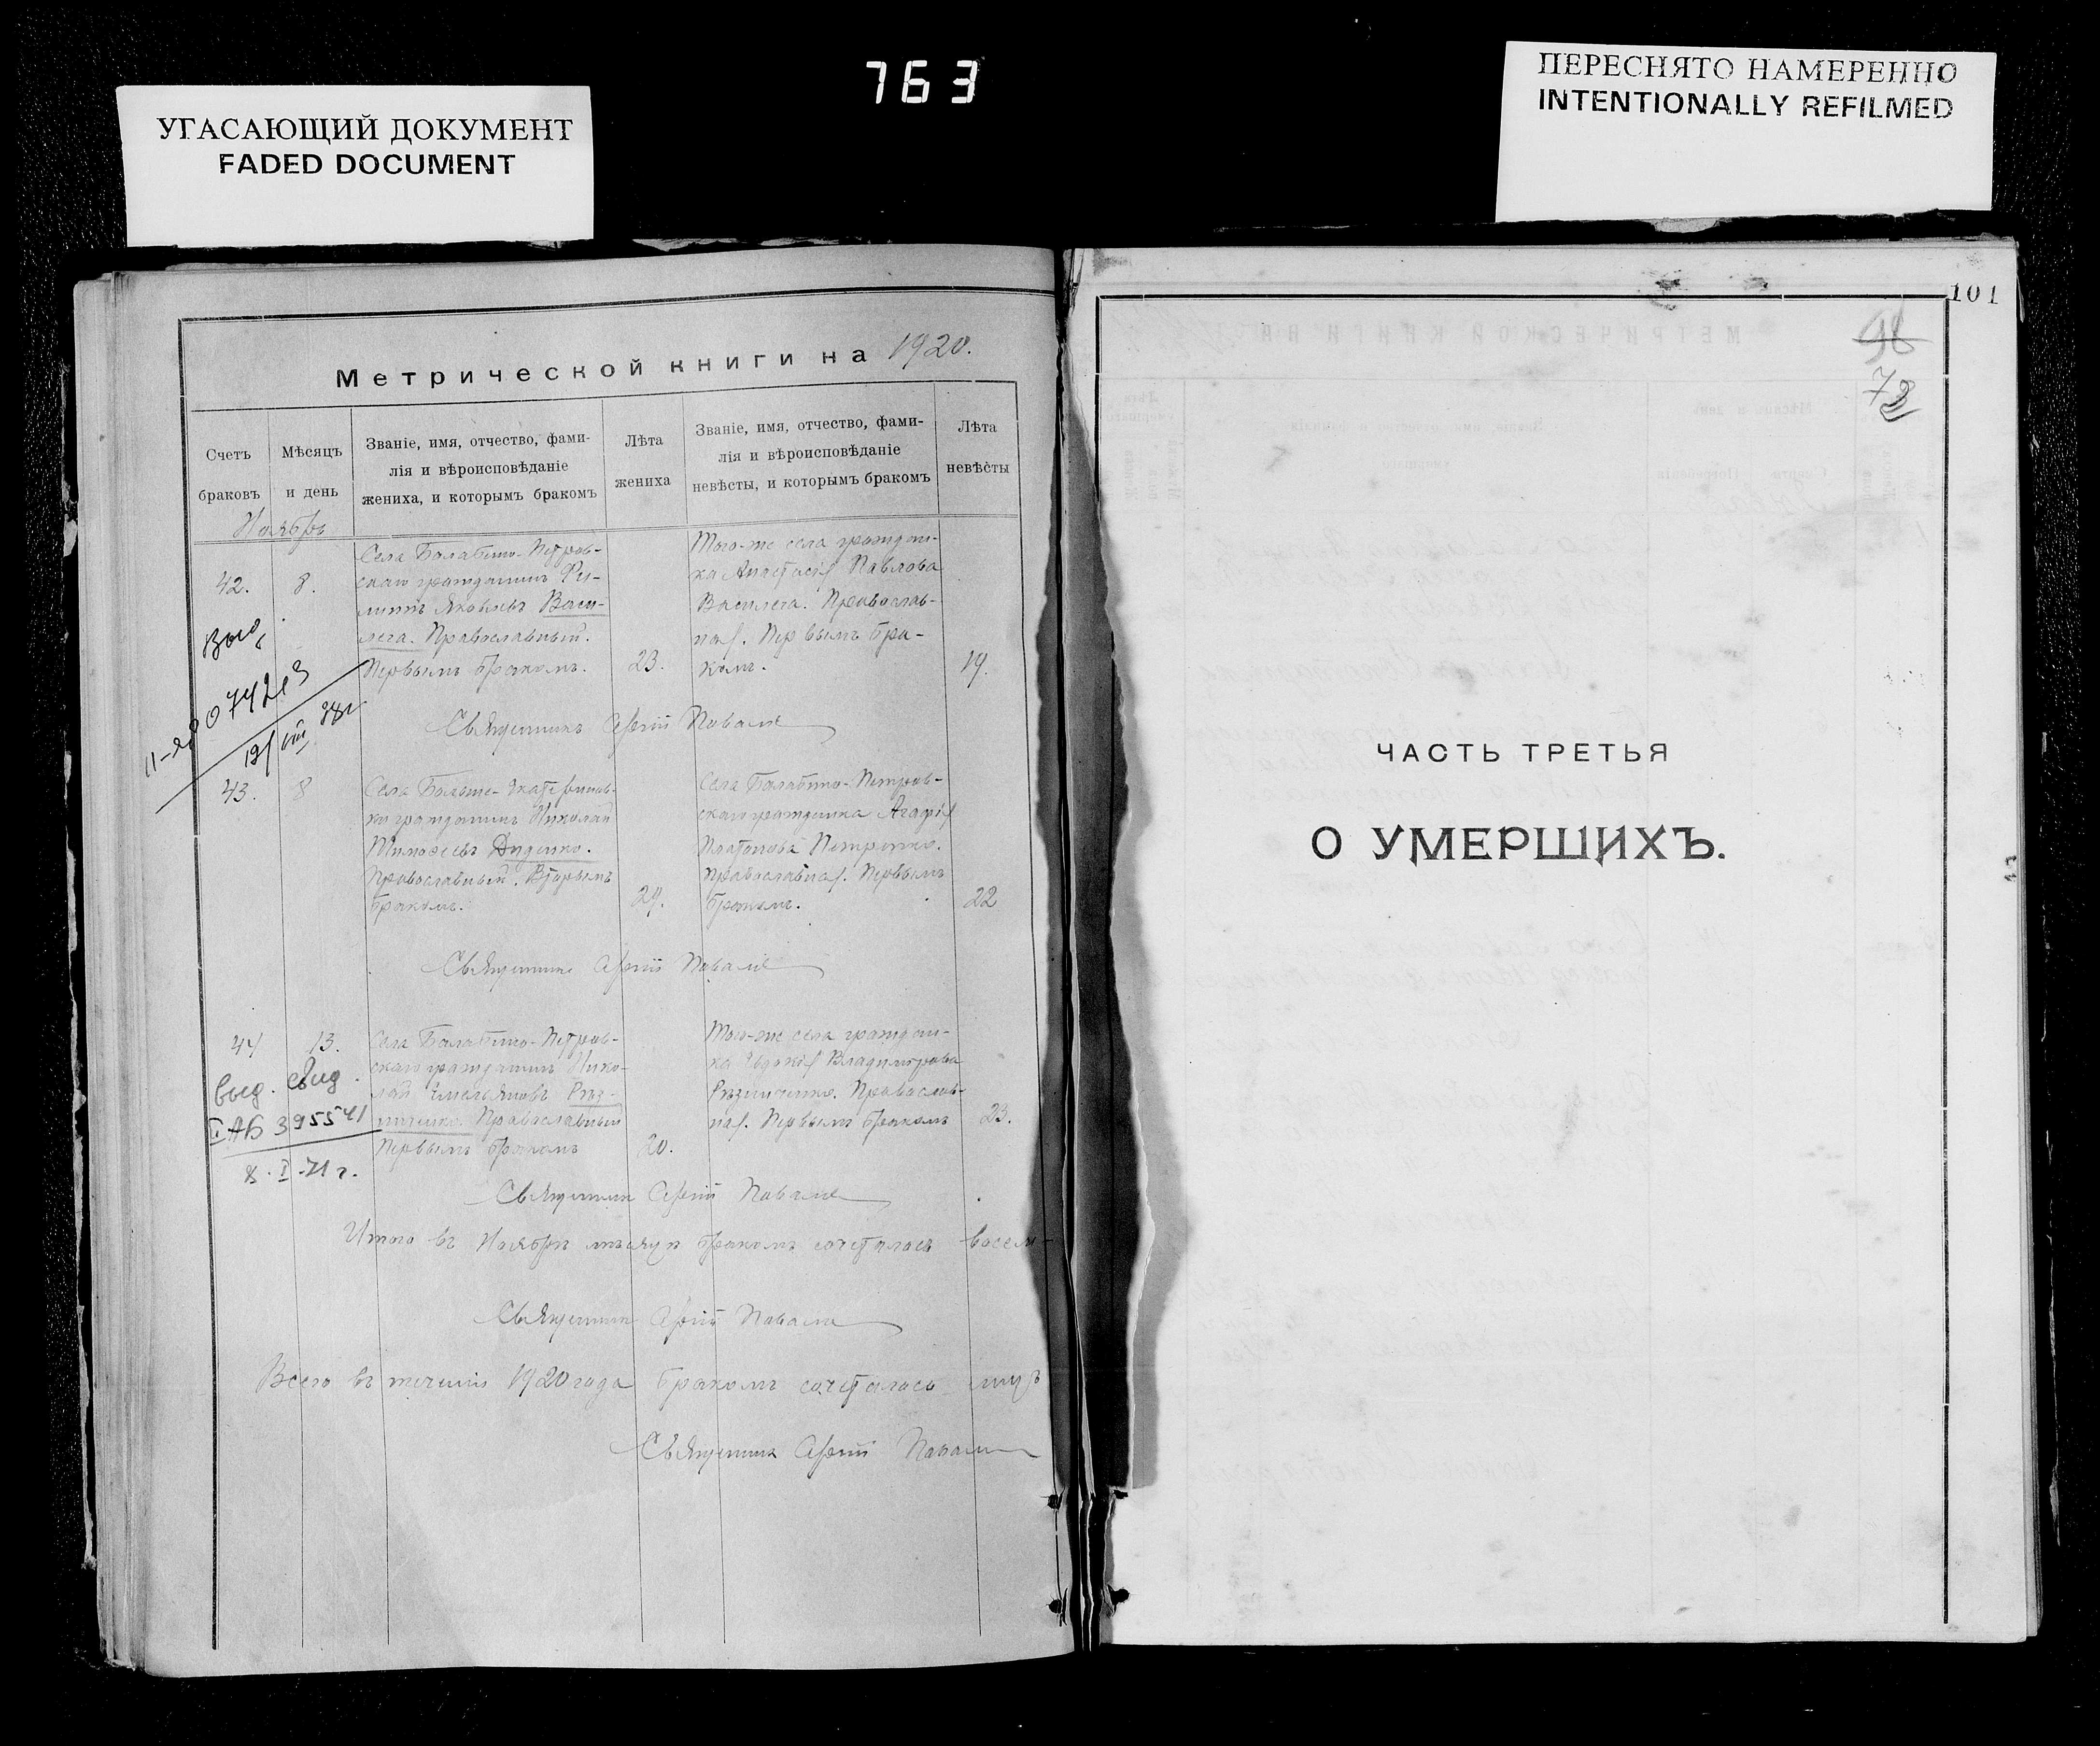 763
УГАСАЮЩИЙ ДОКУМЕНТ
FADED DOCUMENT
ПЕРЕСНЯТО НАМЕРЕННО
INTENTIONALLY REFILMED
Метрической книги на 1920.
Счетъ браковъ
Мѣсяцъ и день
Званіе, имя, отчество, фами-
лія и вѣроисповѣданіе
жениха, и которымъ бракомъ
Лѣта жениха
Званіе, имя, отчество, фами-
лія и вѣроисповѣданіе
невѣсты, и которымъ бракомъ
Лѣта невѣсты
Ноябрь
42.
8.
Села Балабино-Петров-
скаго гражданинъ Фи-
липпъ Яковлевъ Васи-
лега. Православный.
Первымъ бракомъ.
23.
Того-же села граждан-
ка Анастасія Павлова
Василега. Православ-
ная. Первымъ бра-
комъ.
19.
Священникъ Сергій
43.
8
Села Больше-Екатеринов-
ки гражданинъ Николай
Тимофеевъ Диденко.
Православный. Вторымъ
бракомъ.
29.
Села Балабино-Петров-
скаго гражданка Агафія
Платонова Петренко.
Православная. Первымъ
бракомъ.
22
Священникъ Сергій
44
13.
выд. свид.
I АБ 395541
8.I-71 г.
Села Балабино-Петров-
скаго гражданинъ Нико-
лай Емельяновъ Рѣз-
ниченко. Православный
Первымъ бракомъ
20.
Того-же села граждан-
ка Евдокія Владимірова
Рѣзниченко. Православ-
ная. Первымъ бракомъ
23.
Священникъ Сергій
Итого въ Ноябрѣ мѣсяцѣ бракомъ сочеталось восем-
Священникъ Сергій
Всего въ теченіи 1920 года бракомъ сочеталось лицъ
Священникъ Сергій
101
98
73
ЧАСТЬ ТРЕТЬЯ
О УМЕРШИХЪ.